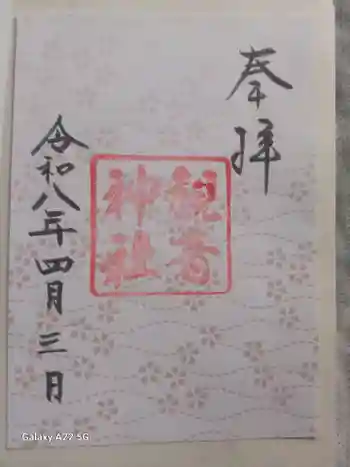 奉拝
神社
令和八年四月三日
Galaxy A22 5G